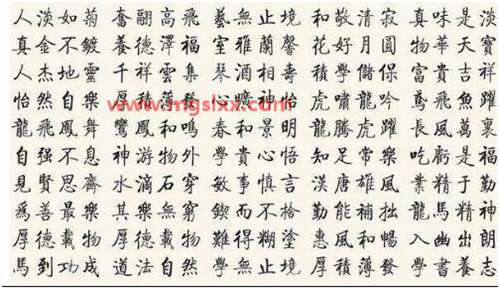 人淡如菊 奮翮高飛 藝無止境 和敬清寂 真味是淡
真金不鍍 養德澤福 室雅蘭馨 花好月圓 物華天寶
人杰地靈 千祥雲集 琴 相壽 學儲保 富貴吉祥
怡然自樂 厚積薄發 心曠神怡 虎嘯龍吟 鳶飛魚躍
www.mgslxx.com
龍飛鳳舞 鸞鳳和鳴 春和景明 龍騰虎躍 長風萬裏
自强不息 神游物外 學貴心悟 知足常樂 吃虧是福
見賢思齊 水滴石穿 敏事慎言 漢唐雄風 業精于勤
爲善最樂 其樂無窮 鍥而不捨 勤能補拙 龍馬精神
厚德載物 厚德載物 難得糊塗 惠風和暢 入幽出朗
馬到功成 道法自然 學無止境 厚積薄發 學書養志